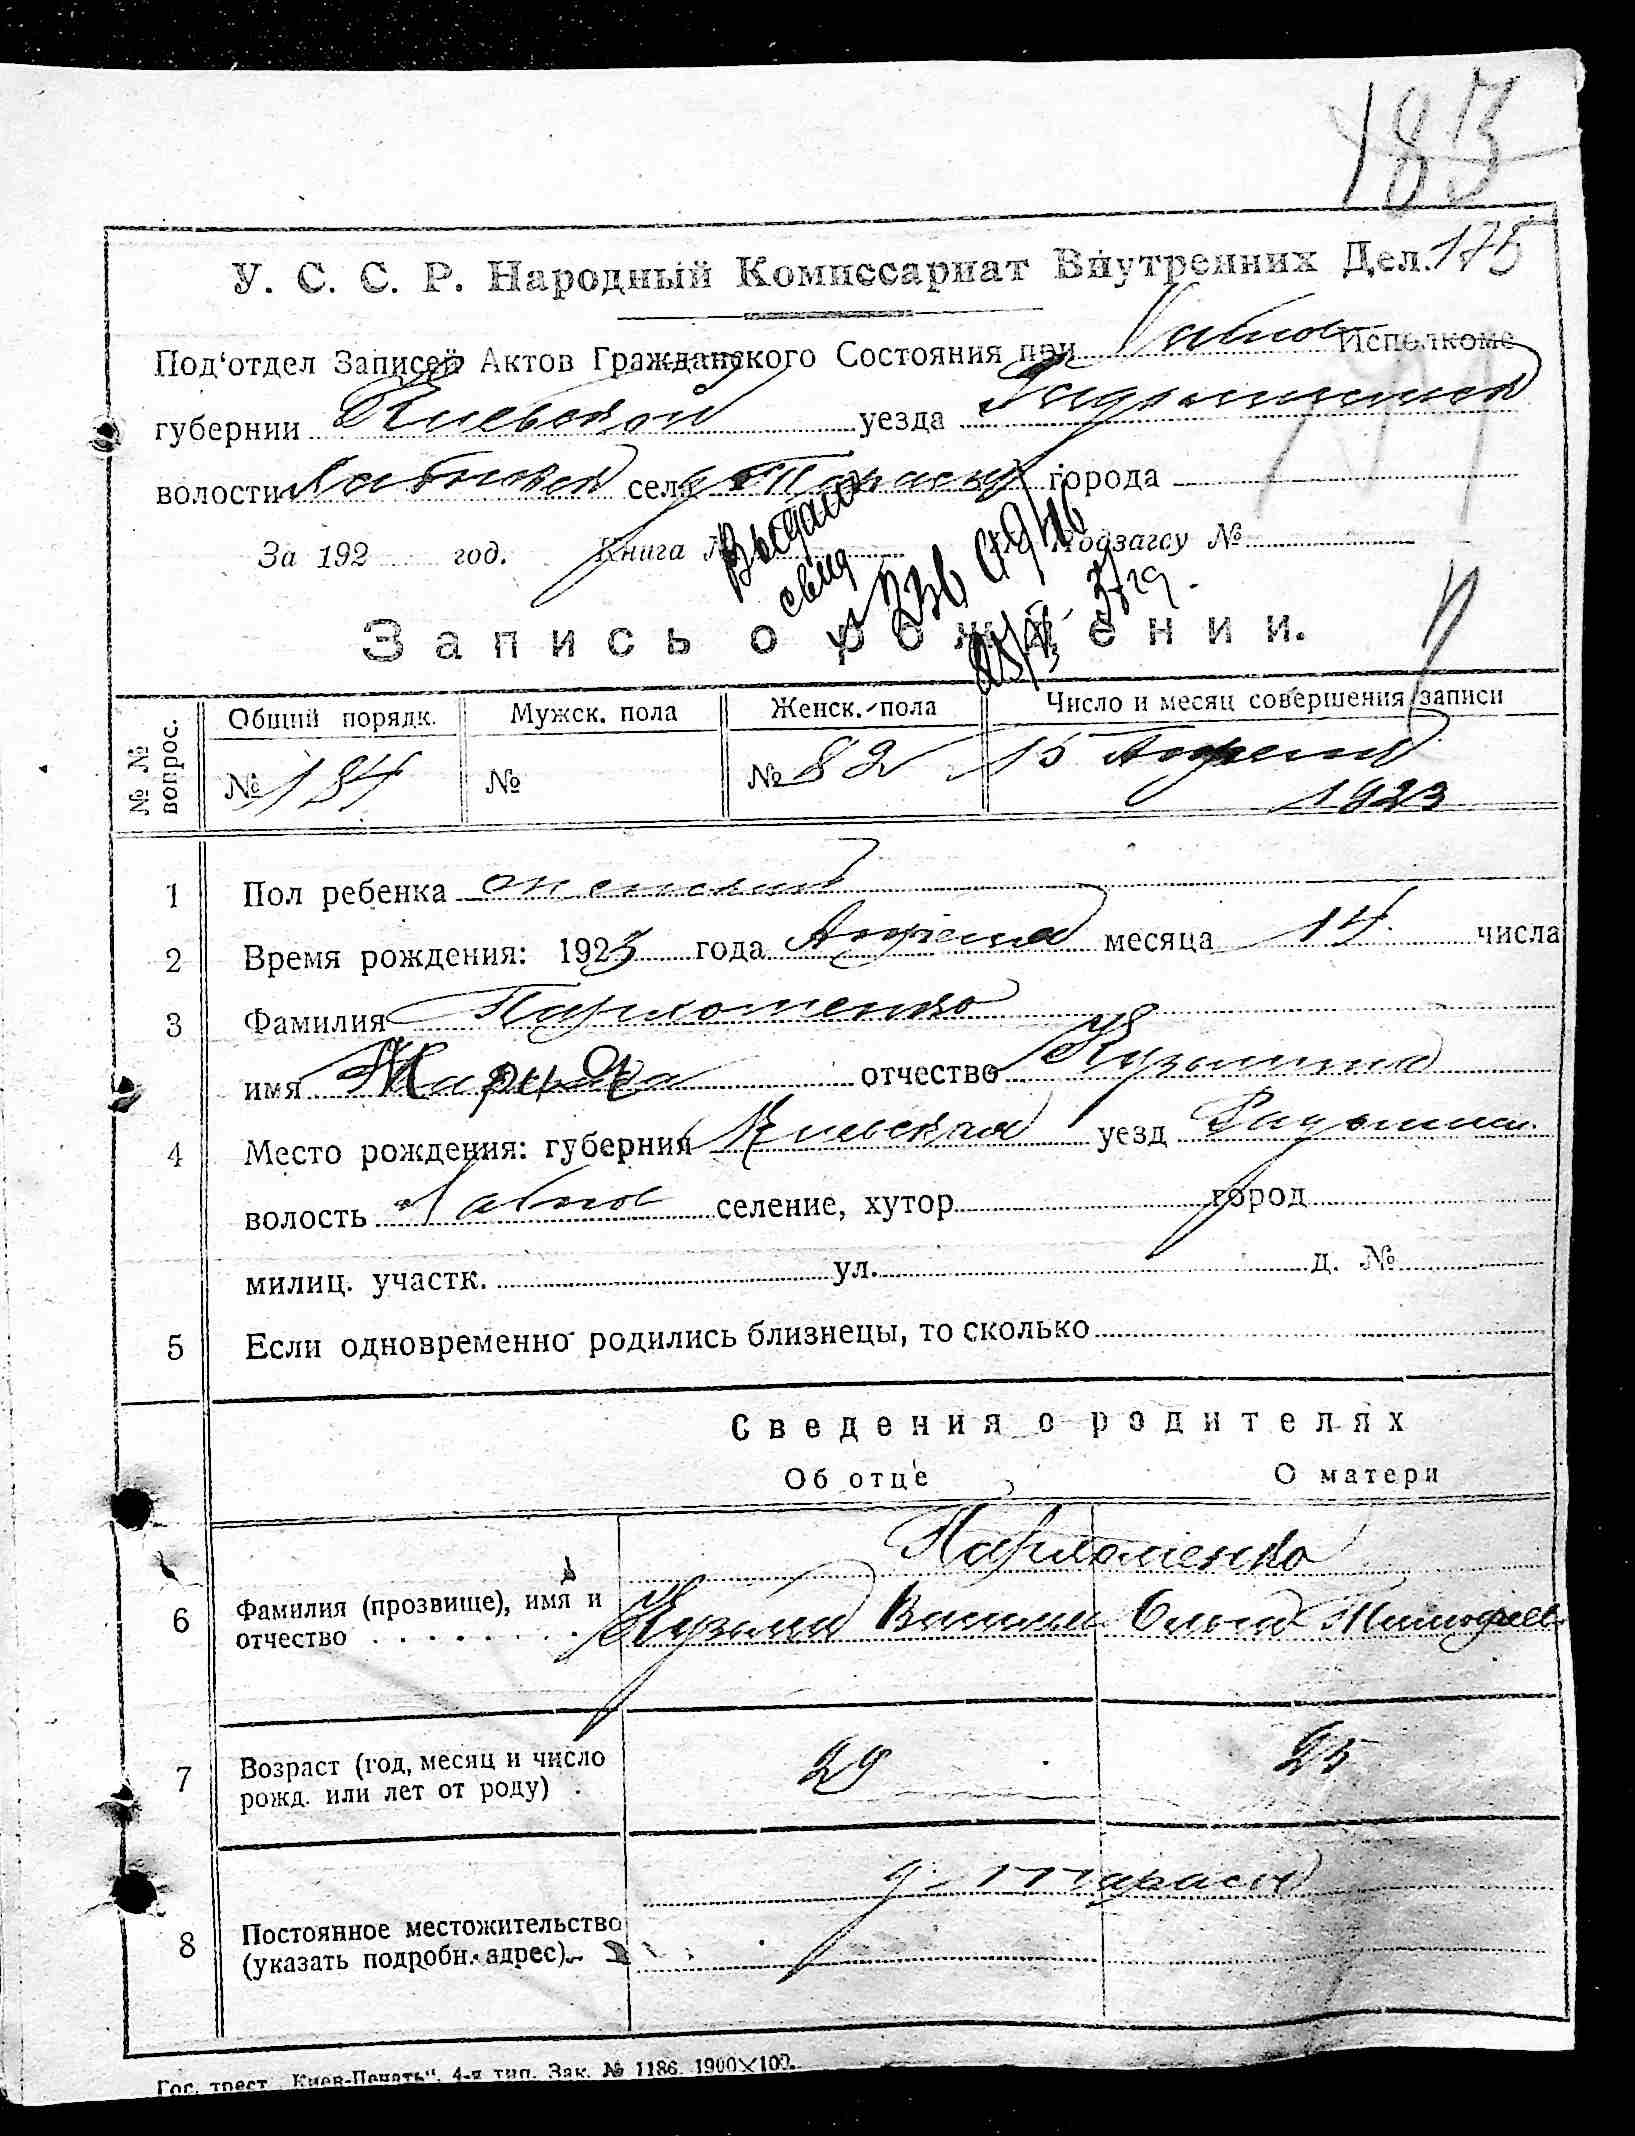 183
У. С. С. Р. Народный Комиссариат Внутренних Дел. 175
Под'отдел Записей Актов Гражданского Состояния при Исполкоме
губернии Киевской уезда
волости села города
За 192 год. Книга № Подзагсу №
Выдано
Запись о рождении.
№ № вопрос. Общий порядк. Мужск. пола Женск. пола Число и месяц совершения записи
№ 184 № № 82 15 Апреля
1923
1 Пол ребенка женский
2 Время рождения: 1923 года Апреля месяца 14 числа
3 Фамилия Пархоменко
имя отчество
4 Место рождения: губерния Киевская уезд Радомыш.
волость селение, хутор город
милиц. участк. ул. д. №
5 Если одновременно родились близнецы, то сколько
Сведения о родителях
Об отце О матери
Пархоменко
6 Фамилия (прозвище), имя и
отчество Кузьма Васильев Ольга Тимофеев
7 Возраст (год, месяц и число
рожд. или лет от роду) 29 25
д. Тарасы
8 Постоянное местожительство
(указать подробн. адрес)
Гос. трест „Киев-Печать“. 4-я тип. Зак. № 1186. 1900×100.